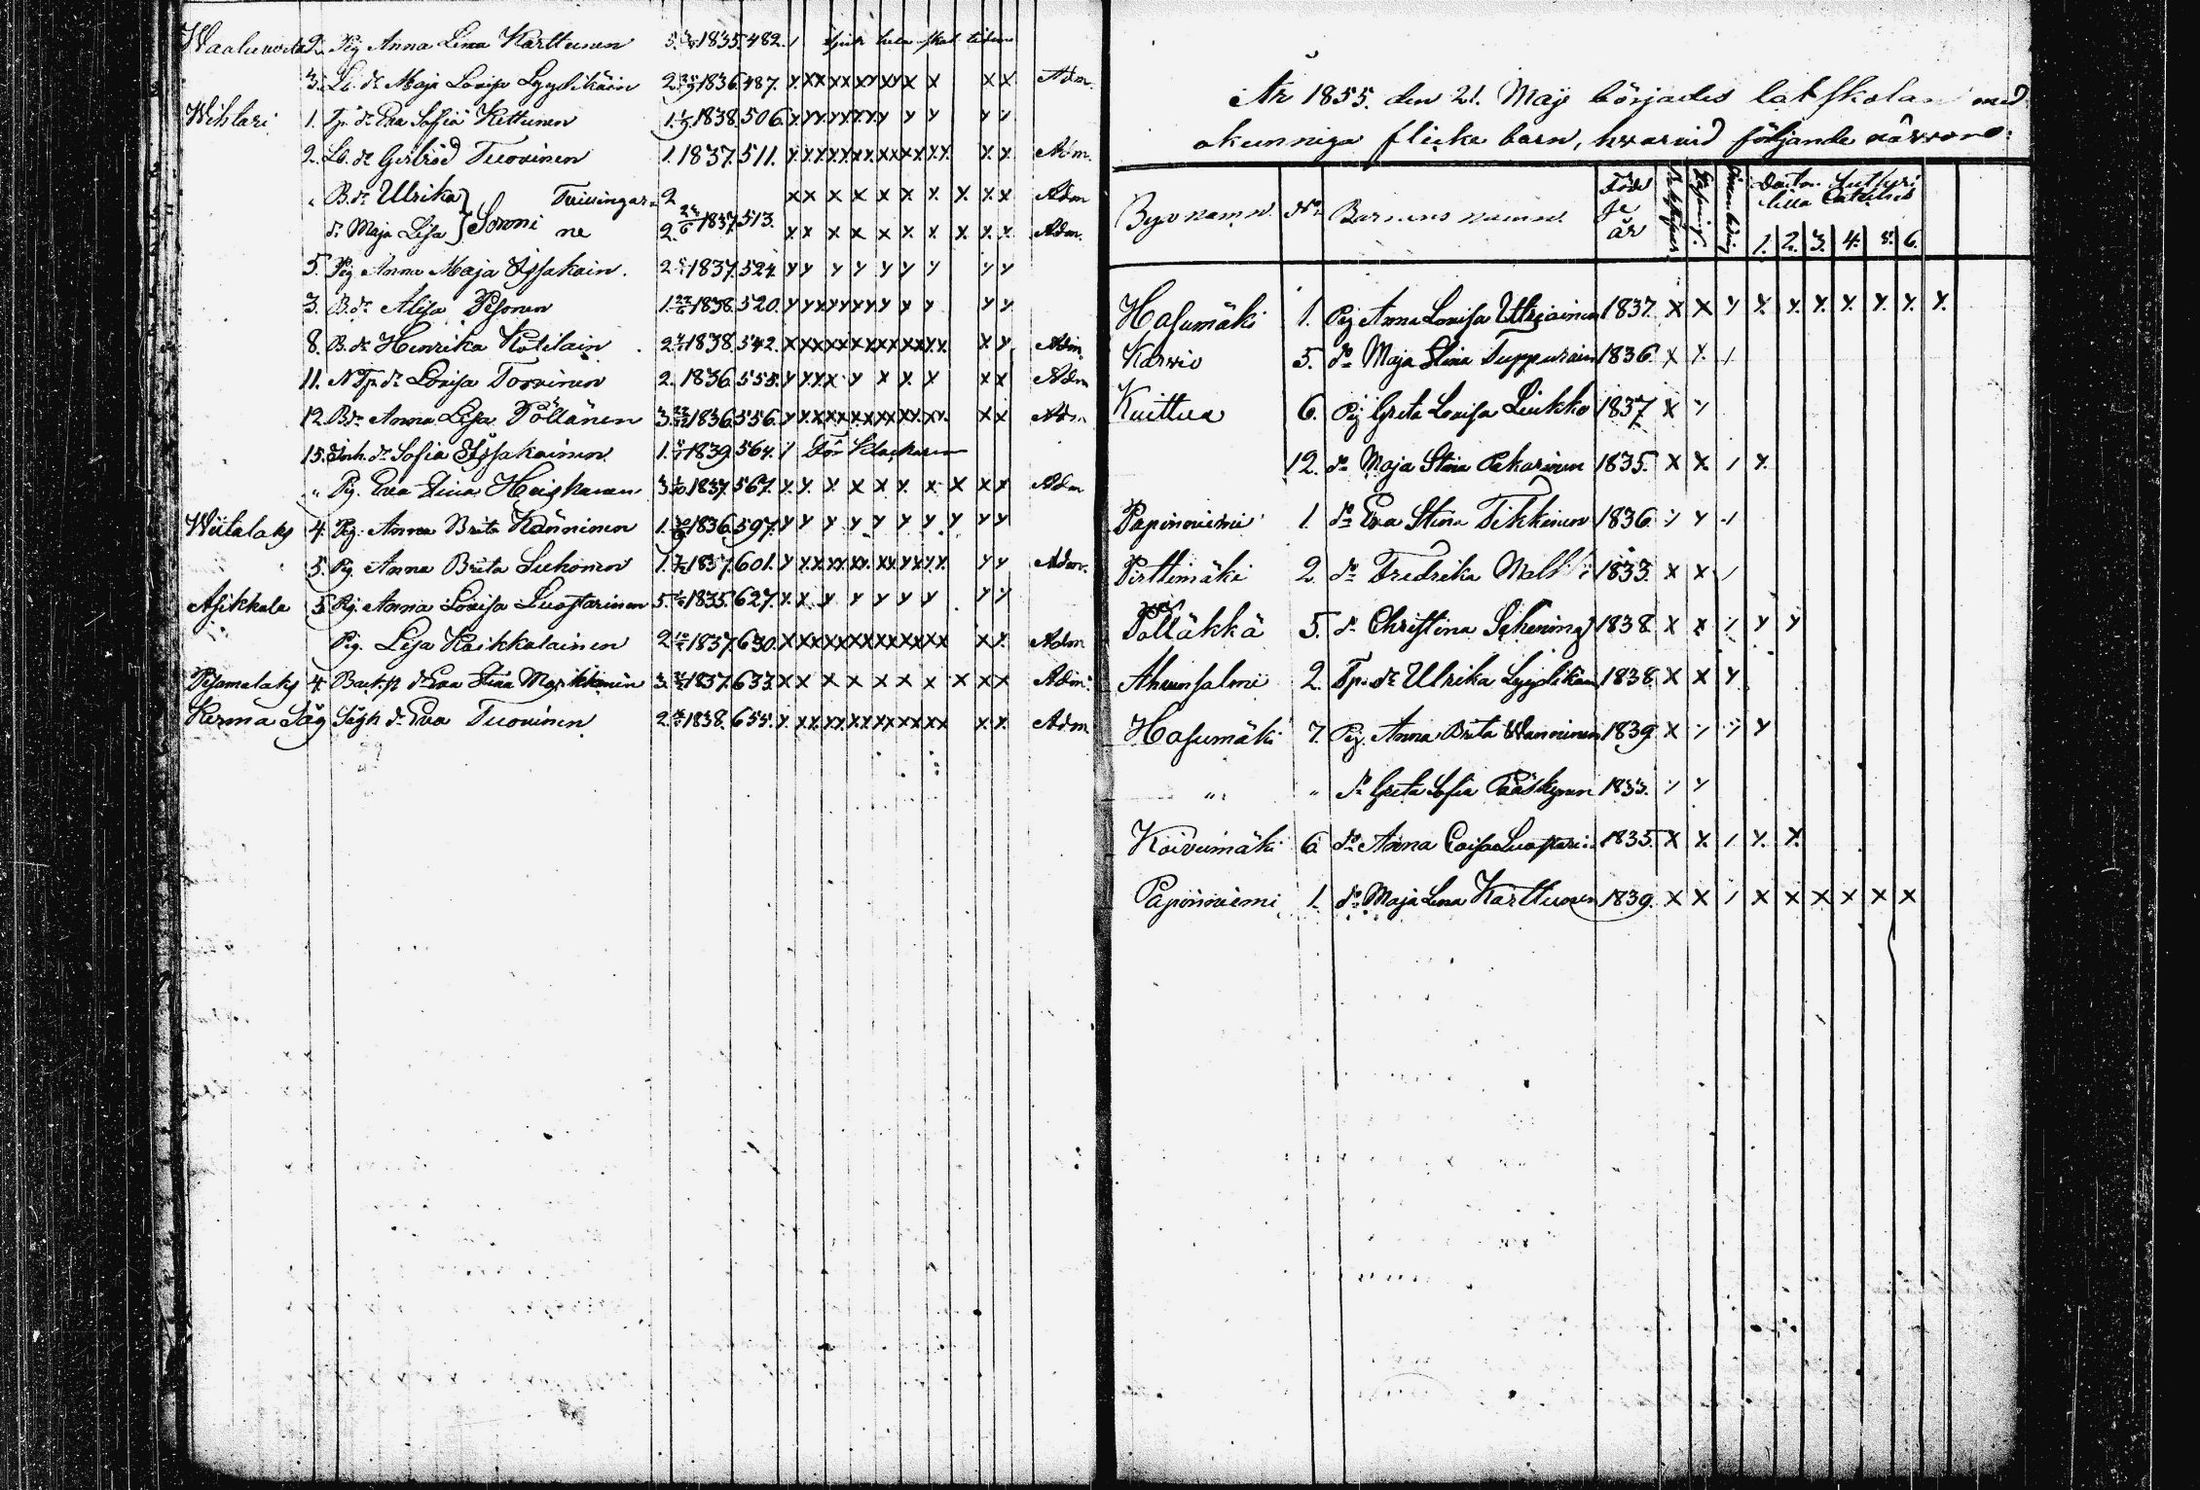 2. Pig Anna Lena Karttunen 3. 1835. 482. / sjuk hela skol tiden
3. Lb. dr Maja Lovisa Lyydikäin 2. 1836. 487. x x x x x x x x x x x x Adm.
Wihlari 1. Tp. dr Eva Sofia Kettunen 1. 1838. 506. x x x x x x x x x x x
2. Lb. dr Gertrud Tuovinen 1. 1837. 511. x x x x x x x x x x x x x x Adm.
" B. dr Ulrika } Tvillingar 2 x x x x x x x x x x Adm
dr Maja Lisa } Sormu ne 2. 1837. 513. x x x x x x x x x x Adm.
5. Pig Anna Maja Assakain. 2. 1837. 524. x x x x x x x x x
3. B. dr Alisa Pesonen 1. 1838. 520. x x x x x x x x x x x
8. B. dr Henrika Kotilain 2. 1838. 542. x x x x x x x x x x x x x x Adm.
11. N Tp. dr Lovisa Torvinen 2. 1836. 555. x x x x x x x x x Adm
12. B. dr Anna Lisa Pöllänen 3. 1836. 556. x x x x x x x x x x x x x x Adm.
15. Inh. dr Sofia Assakainen 1. 1839. 564. / För Klockaren
" Pig. Eva Stina Heiskanen 3. 1837. 567. x x x x x x x x x x Adm
Wiilalaks 4. Pig. Anna Brita Känninen 1. 1836. 597. x x x x x x x x x x
5. Pig. Anna Brita Suhonen 1. 1837. 601. x x x x x x x x x x x x x Adm.
Asikkala 5. Pig. Anna Lovisa Luostarinen 5. 1835. 627. x x x x x x x x x
Pig. Lisa Kaikkalainen 2. 1837. 630. x x x x x x x x x x x x x x Adm
4. dr Eva Stina Markkanen 3. 1837. 633. x x x x x x x x x x Adm.
Kerma Såg Sågk dr Eva Tuovinen 2. 1838. 655. x x x x x x x x x x x x x Adm
År 1855. den 21. Maji börjades lätskolan med
okunniga flicke barn, hvarvid följande närvoro:
Bya namn. No Barnens namn. Föd
lse
år
lilla Catekes
1. 2. 3. 4. 5. 6.
Hasumäki 1. Pig Anna Lovisa Utriainen 1837. x x x x x x x x x x
Karvio 5. do Maja Stina Tuppurain 1836. x x /
Kuittua 6. Pig Greta Lovisa Liukko 1837 x x
12. do Maja Stina Pakarinen 1835. x x / x
Paponniemi 1. do Eva Stina Tikkinen 1836 x x x
Pirttimäki 2. do Fredrika 1833. x x /
Pölläkkä 5. do Christina 1838 x x x x x
Ahvensalmi 2. Tp. dr Ulrika Lyydikäin 1838. x x x
Hasumäki 7. Pig. Anna Brita Wanninen 1839. x x x x
" " do Greta Sofia Pääskynen 1833. x x
Koivumäki 6 do Anna Caisa Luostari 1835. x x / x x
Paponniemi 1. do Maja Lena Karttunen 1839. x x / x x x x x x